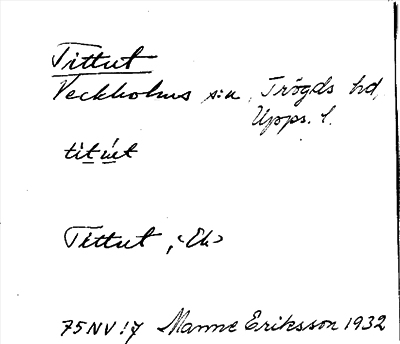 Tittut
Veckholms sn, Trögds hd,
Upps. l.
titut
Tittut, <Ek>
75NV!7 Manne Eriksson 1932